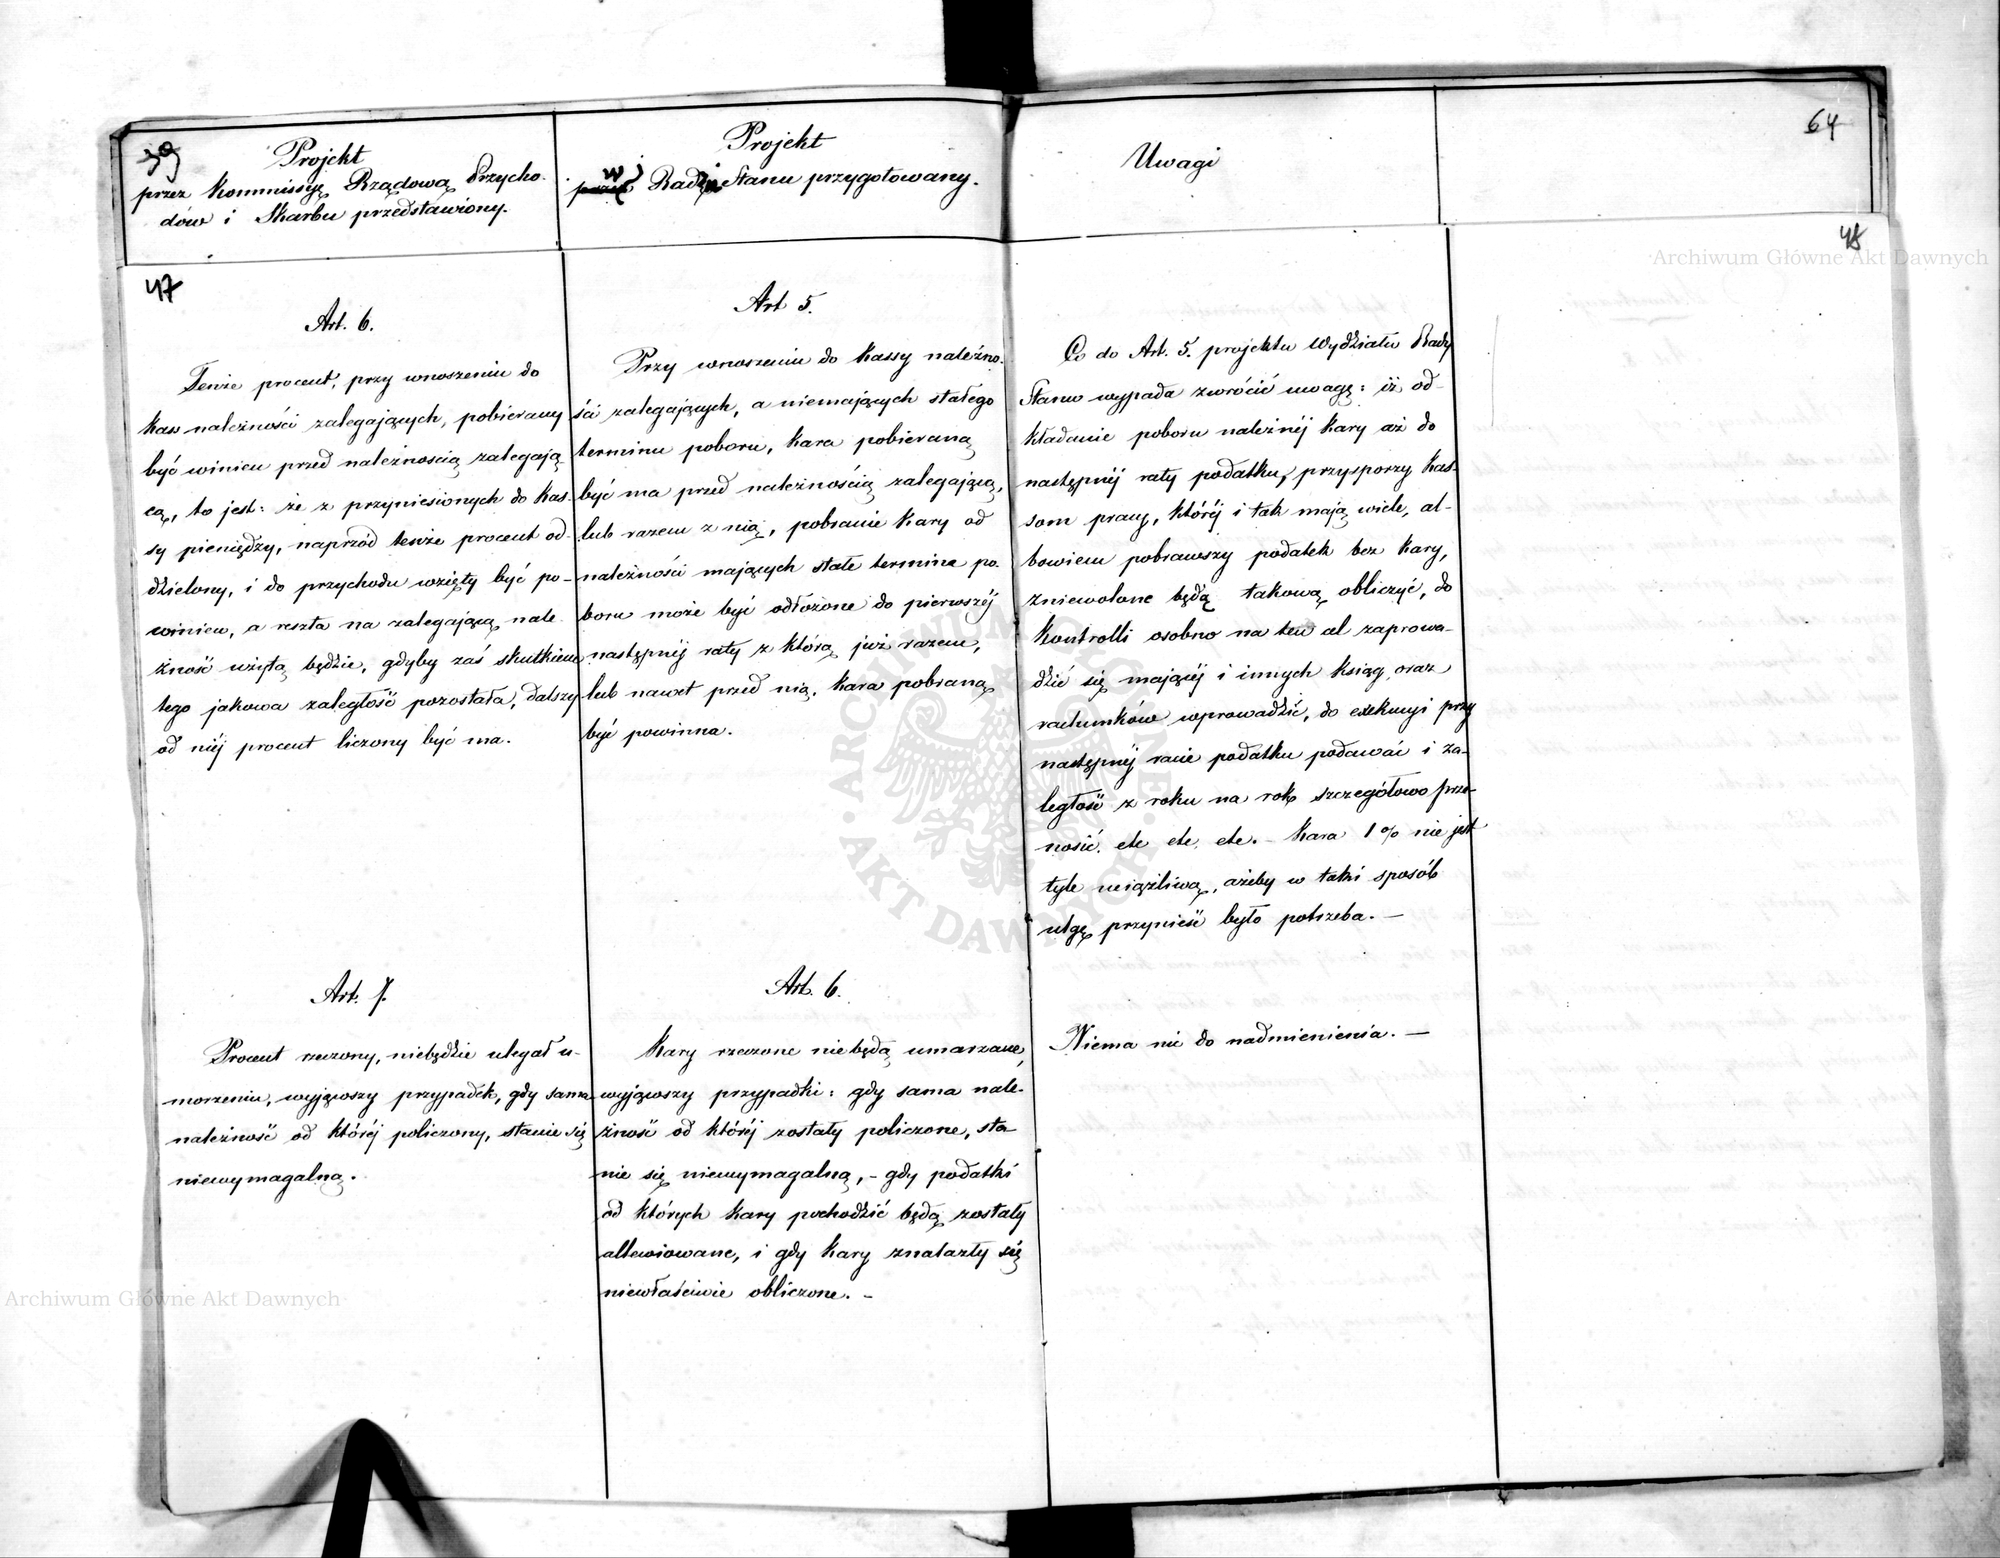 39
Projekt
przez Kommissyę Rządową Przycho-
dów i Skarbu przedstawiony.
Projekt
w Radzie Stanu przygotowany.
Uwagi
64
47
Art. 6.
Tenże procent, przy wnoszeniu do
kass należności zalegających, pobierany
być winien przed należnością zalegają-
cą, to jest: że z przyniesionych do kas-
sy pieniędzy, naprzód tenże procent od-
dzielony, i do przychodu wzięty być po-
winien, a reszta na zalegającą nale-
żność wziętą będzie, gdyby zaś skutkiem
tego jakowa zaległość pozostała, dalszy
od niéj procent liczony być ma.
Art. 7.
Procent rzeczony, niebędzie ulegał u-
morzeniu, wyjąwszy przypadek, gdy sama
należność od któréj policzony, stanie się
niewymagalną.
Art 5.
Przy wnoszeniu do kassy należno-
ści zalegających, a niemających stałego
terminu poboru, kara pobieraną
być ma przed należnością zalegającą,
lub razem z nią, pobranie kary od
należności mających stałe termina po-
boru może być odłożone do pierwszéj
następnéj raty z którą już razem,
lub nawet przed nią, kara pobraną
być powinna.
Art. 6.
Kary rzeczone niebędą umarzane,
wyjąwszy przypadki: gdy sama nale-
żność od któréj zostały policzone, sta-
nie się niewymagalną, - gdy podatki
od których kary pochodzić będą zostały
allewiowane, i gdy kary znalazły się
niewłaściwie obliczone. -
48
Co do Art. 5. projektu Wydziału Rady
Stanu wypada zwrócić uwagę: iż od-
kładanie poboru należnéj kary aż do
następnéj raty podatku, przysporzy kas-
som pracy, któréj i tak mają wiele, al-
bowiem pobrawszy podatek bez kary,
zniewolone będą takową obliczyć, do
Kontrolli osobno na ten cel zaprowa-
dzić się mającéj i innych ksiąg oraz
rachunków wprowadzić, do exekucyi przy
następnéj racie podatku podawać i za-
ległość z roku na rok szczegółowo prze-
nosić. etc etc. etc. - Kara 1% nie jest
tyle uciążliwą, ażeby w taki sposób
ulgę przynieść było potrzeba. -
Niema nic do nadmienienia. -
Archiwum Główne Akt Dawnych
Archiwum Główne Akt Dawnych
ARCHIWUM GŁÓWNE AKT DAWNYCH